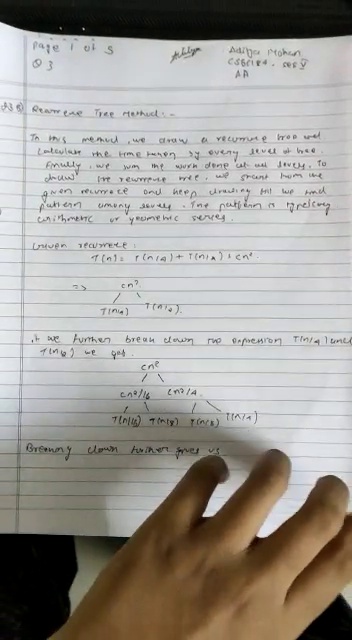 Page 1 of 5
Q 3
Aditya Mohan
CSE/184, SEM V
AA
Q3 a) Recurrence Tree Method:-
In this method, we draw a recurrence tree and
calculate the time taken by every level of tree.
Finally, we sum the work done at all levels. To
draw the recurrence tree, we start from the
given recurrence and keep drawing till we find
pattern among levels. The pattern is typically
arithmetic or geometric series.
Given recurrence:
T(n) = T(n/4) + T(n/2) + cn²
=> cn²
T(n/4) T(n/2).
If we further break down the expression T(n/4) and
T(n/2) we get.
cn²
cn²/16 cn²/4
T(n/16) T(n/8) T(n/8) T(n/4)
down further gives us